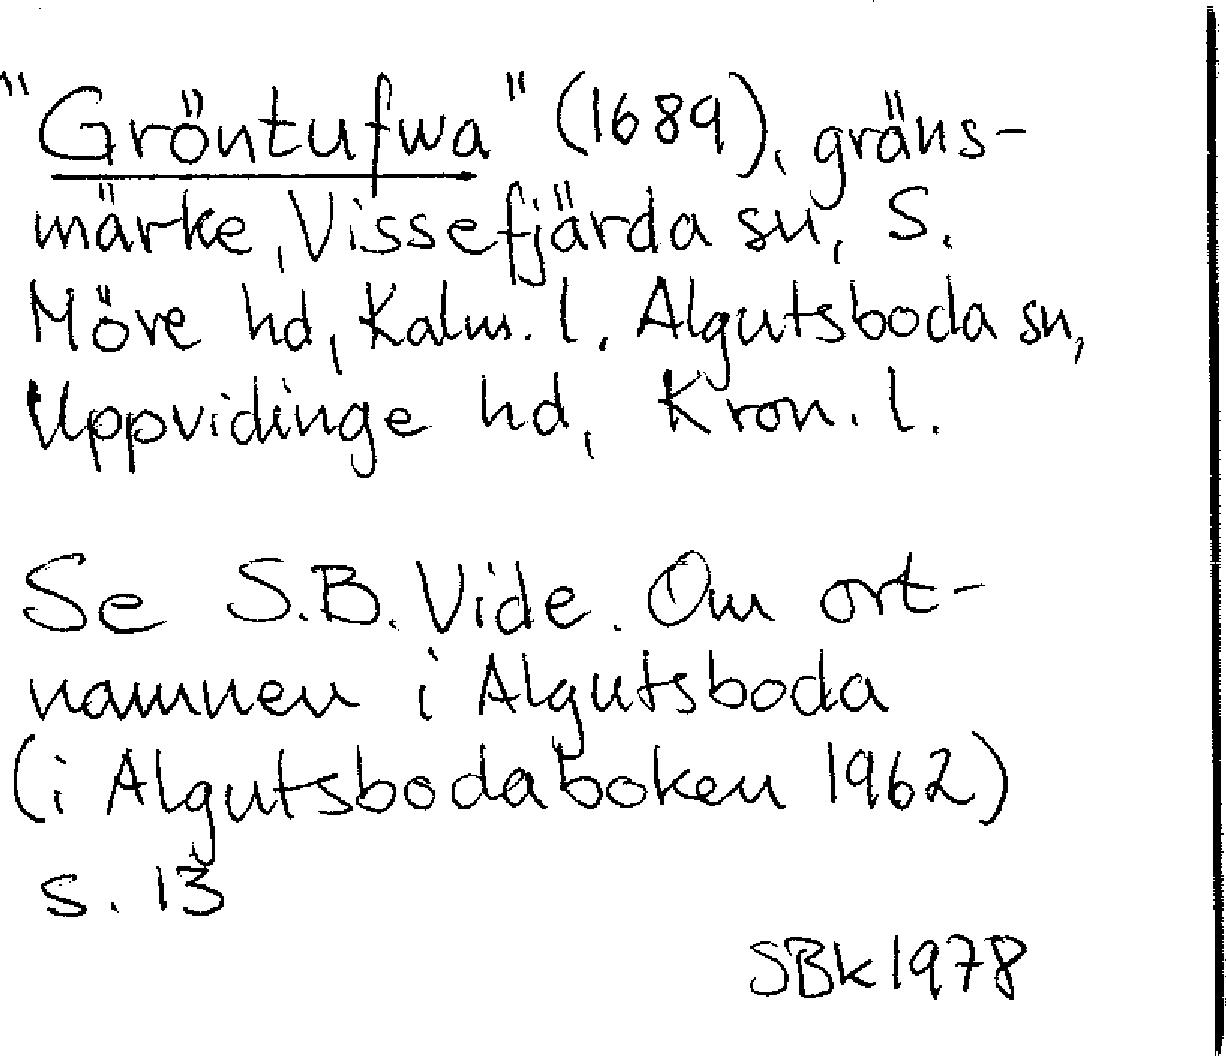 "Gröntufwa" (1689), gräns-
märke, Vissefjärda sn, S.
Möre hd, Kalm. l. Algutsboda sn,
Uppvidinge hd, Kron. l.
Se S.B. Vide. Om ort-
namnen i Algutsboda
(i Algutsbodaboken 1962)
s. 13
SBk 1978